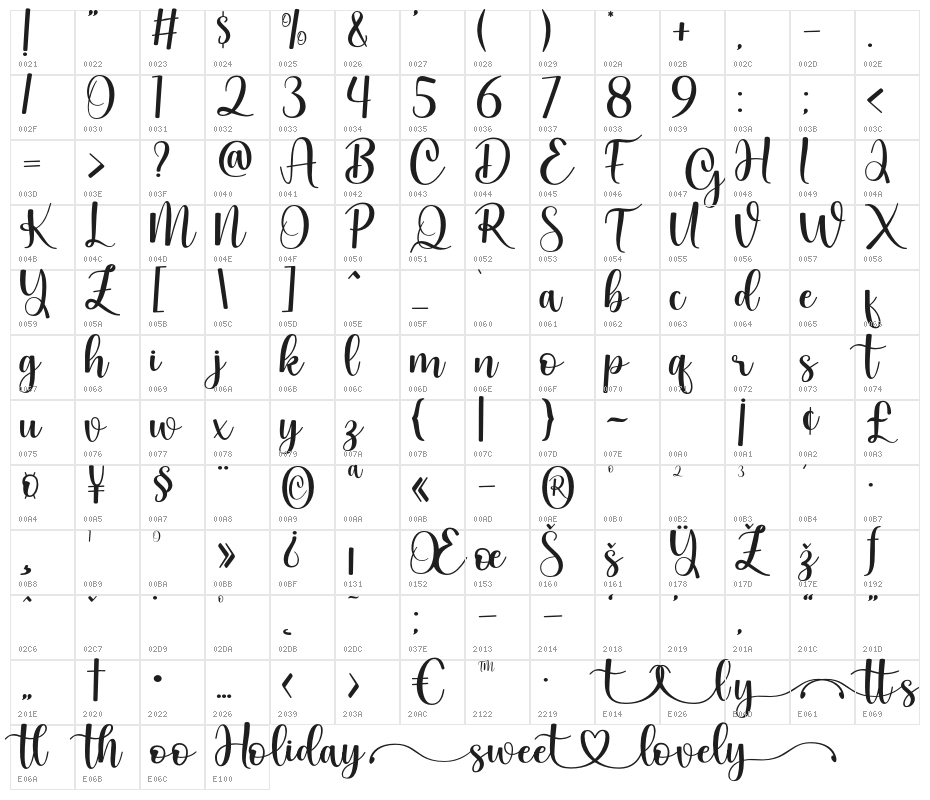 ! " # $ % & ' ( ) * + , - .
0021 0022 0023 0024 0025 0026 0027 0028 0029 002A 002B 002C 002D 002E
/ 0 1 2 3 4 5 6 7 8 9 : ; <
002F 0030 0031 0032 0033 0034 0035 0036 0037 0038 0039 003A 003B 003C
= > ? @ A B C D E F G H I J
003D 003E 003F 0040 0041 0042 0043 0044 0045 0046 0047 0048 0049 004A
K L M N O P Q R S T U V W X
004B 004C 004D 004E 004F 0050 0051 0052 0053 0054 0055 0056 0057 0058
Y Z [ \ ] ^ _ ` a b c d e f
0059 005A 005B 005C 005D 005E 005F 0060 0061 0062 0063 0064 0065 0066
g h i j k l m n o p q r s t
0067 0068 0069 006A 006B 006C 006D 006E 006F 0070 0071 0072 0073 0074
u v w x y z { | } ~ ¡ ¢ £
0075 0076 0077 0078 0079 007A 007B 007C 007D 007E 00A0 00A1 00A2 00A3
¤ ¥ § ¨ © ª « - ® ° ² ³ ´ ·
00A4 00A5 00A7 00A8 00A9 00AA 00AB 00AD 00AE 00B0 00B2 00B3 00B4 00B7
¸ ¹ º » ¿ ı Œ œ Š š Ÿ Ž ž ƒ
00B8 00B9 00BA 00BB 00BF 0131 0152 0153 0160 0161 0178 017D 017E 0192
ˆ ˇ ˙ ˚ ˛ ˜ ; – — ‘ ’ ‚ “ ”
02C6 02C7 02D9 02DA 02DB 02DC 037E 2013 2014 2018 2019 201A 201C 201D
„ † • … ‹ › € ™ ∙ t ly tts
201E 2020 2022 2026 2039 203A 20AC 2122 2219 E014 E026 E061 E069
tl th oo Holiday sweet lovely
E06A E06B E06C E100